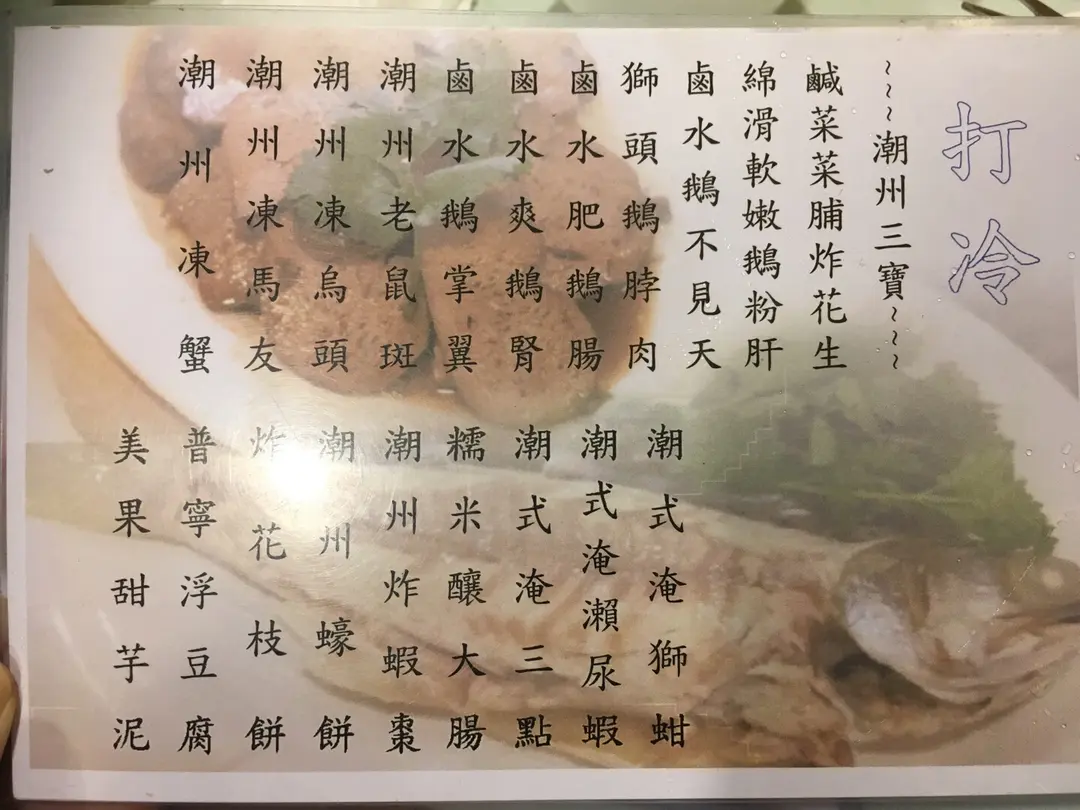 打冷
~~~潮州三寶~~~
鹹菜菜脯炸花生
綿滑軟嫩鵝粉肝
鹵水鵝不見天
獅頭鵝脖肉
鹵水肥鵝腸
鹵水爽鵝腎
鹵水鵝掌翼
潮州老鼠斑
潮州凍烏頭
潮州凍馬友
潮州凍蟹
潮式淹獅蚶
潮式淹瀨尿蝦
潮式淹三點
糯米釀大腸
潮州炸蝦棗
潮州蠔餅
炸花枝餅
普寧浮豆腐
美果甜芋泥